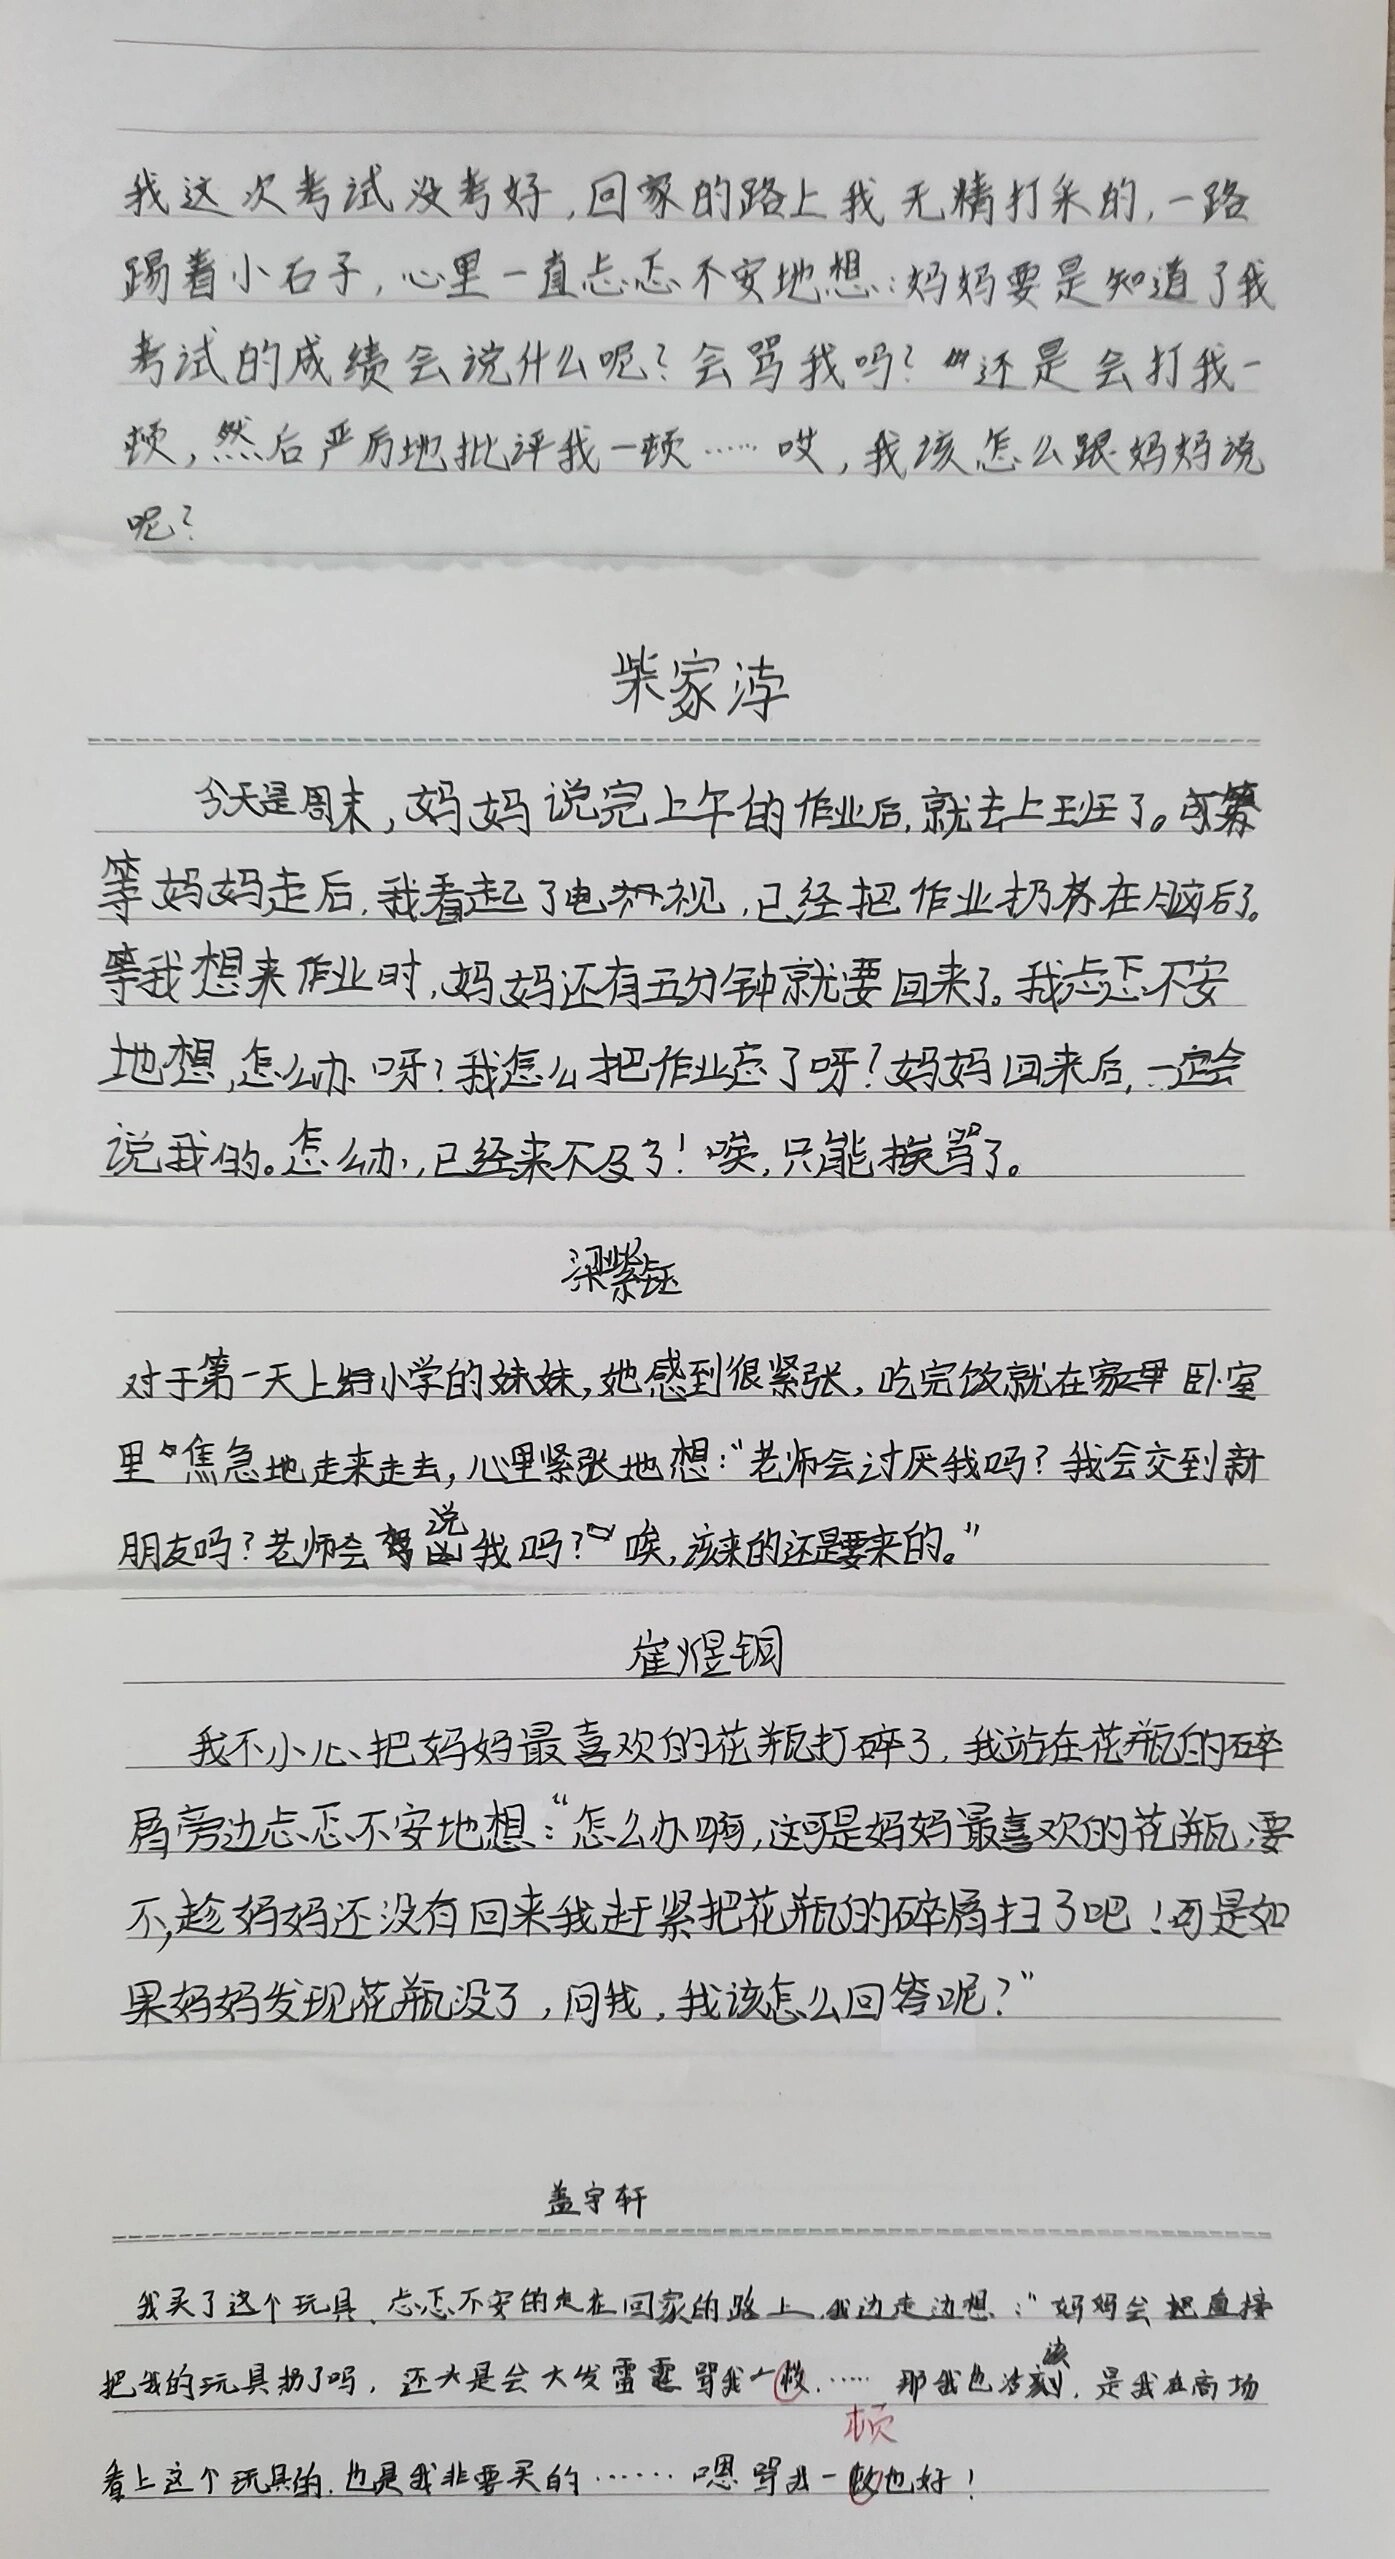 我这次考试没考好,回家的路上我无精打采的,一路
踢着小石子,心里一直忐忑不安地想:妈妈要是知道了我
考试的成绩会说什么呢?会骂我吗?还是会打我一
顿,然后严厉地批评我一顿……哎,我该怎么跟妈妈说
呢?
柴家浡
今天是周末,妈妈说完上午的作业后,就去上班了。可
等妈妈走后,我看起了电视,已经把作业扔在脑后了。
等我想来作业时,妈妈还有五分钟就要回来了。我忐忑不安
地想,怎么办呀?我怎么把作业忘了呀?妈妈回来后,一定会
说我的。怎么办,已经来不及了!唉,只能挨骂了。
梁紫钰
对于第一天上小学的妹妹,她感到很紧张,吃完饭就在家里卧室
里焦急地走来走去,心里紧张地想:“老师会讨厌我吗?我会交到新
朋友吗?老师会说我吗?唉,该来的还是要来的。”
崔煜铜
我不小心把妈妈最喜欢的花瓶打碎了,我站在花瓶的碎
屑旁边忐忑不安地想:“怎么办啊,这可是妈妈最喜欢的花瓶,要
不,趁妈妈还没有回来我赶紧把花瓶的碎屑扫了吧!可是如
果妈妈发现花瓶没了,问我,我该怎么回答呢?”
盖宇轩
我买了这个玩具,忐忑不安的走在回家的路上,我边走边想:“妈妈会把直接
把我的玩具扔了吗,还是会大发雷霆骂我一……那我也活该,是我在商场
顿
看上这个玩具的,也是我非要买的……嗯骂我一也好!